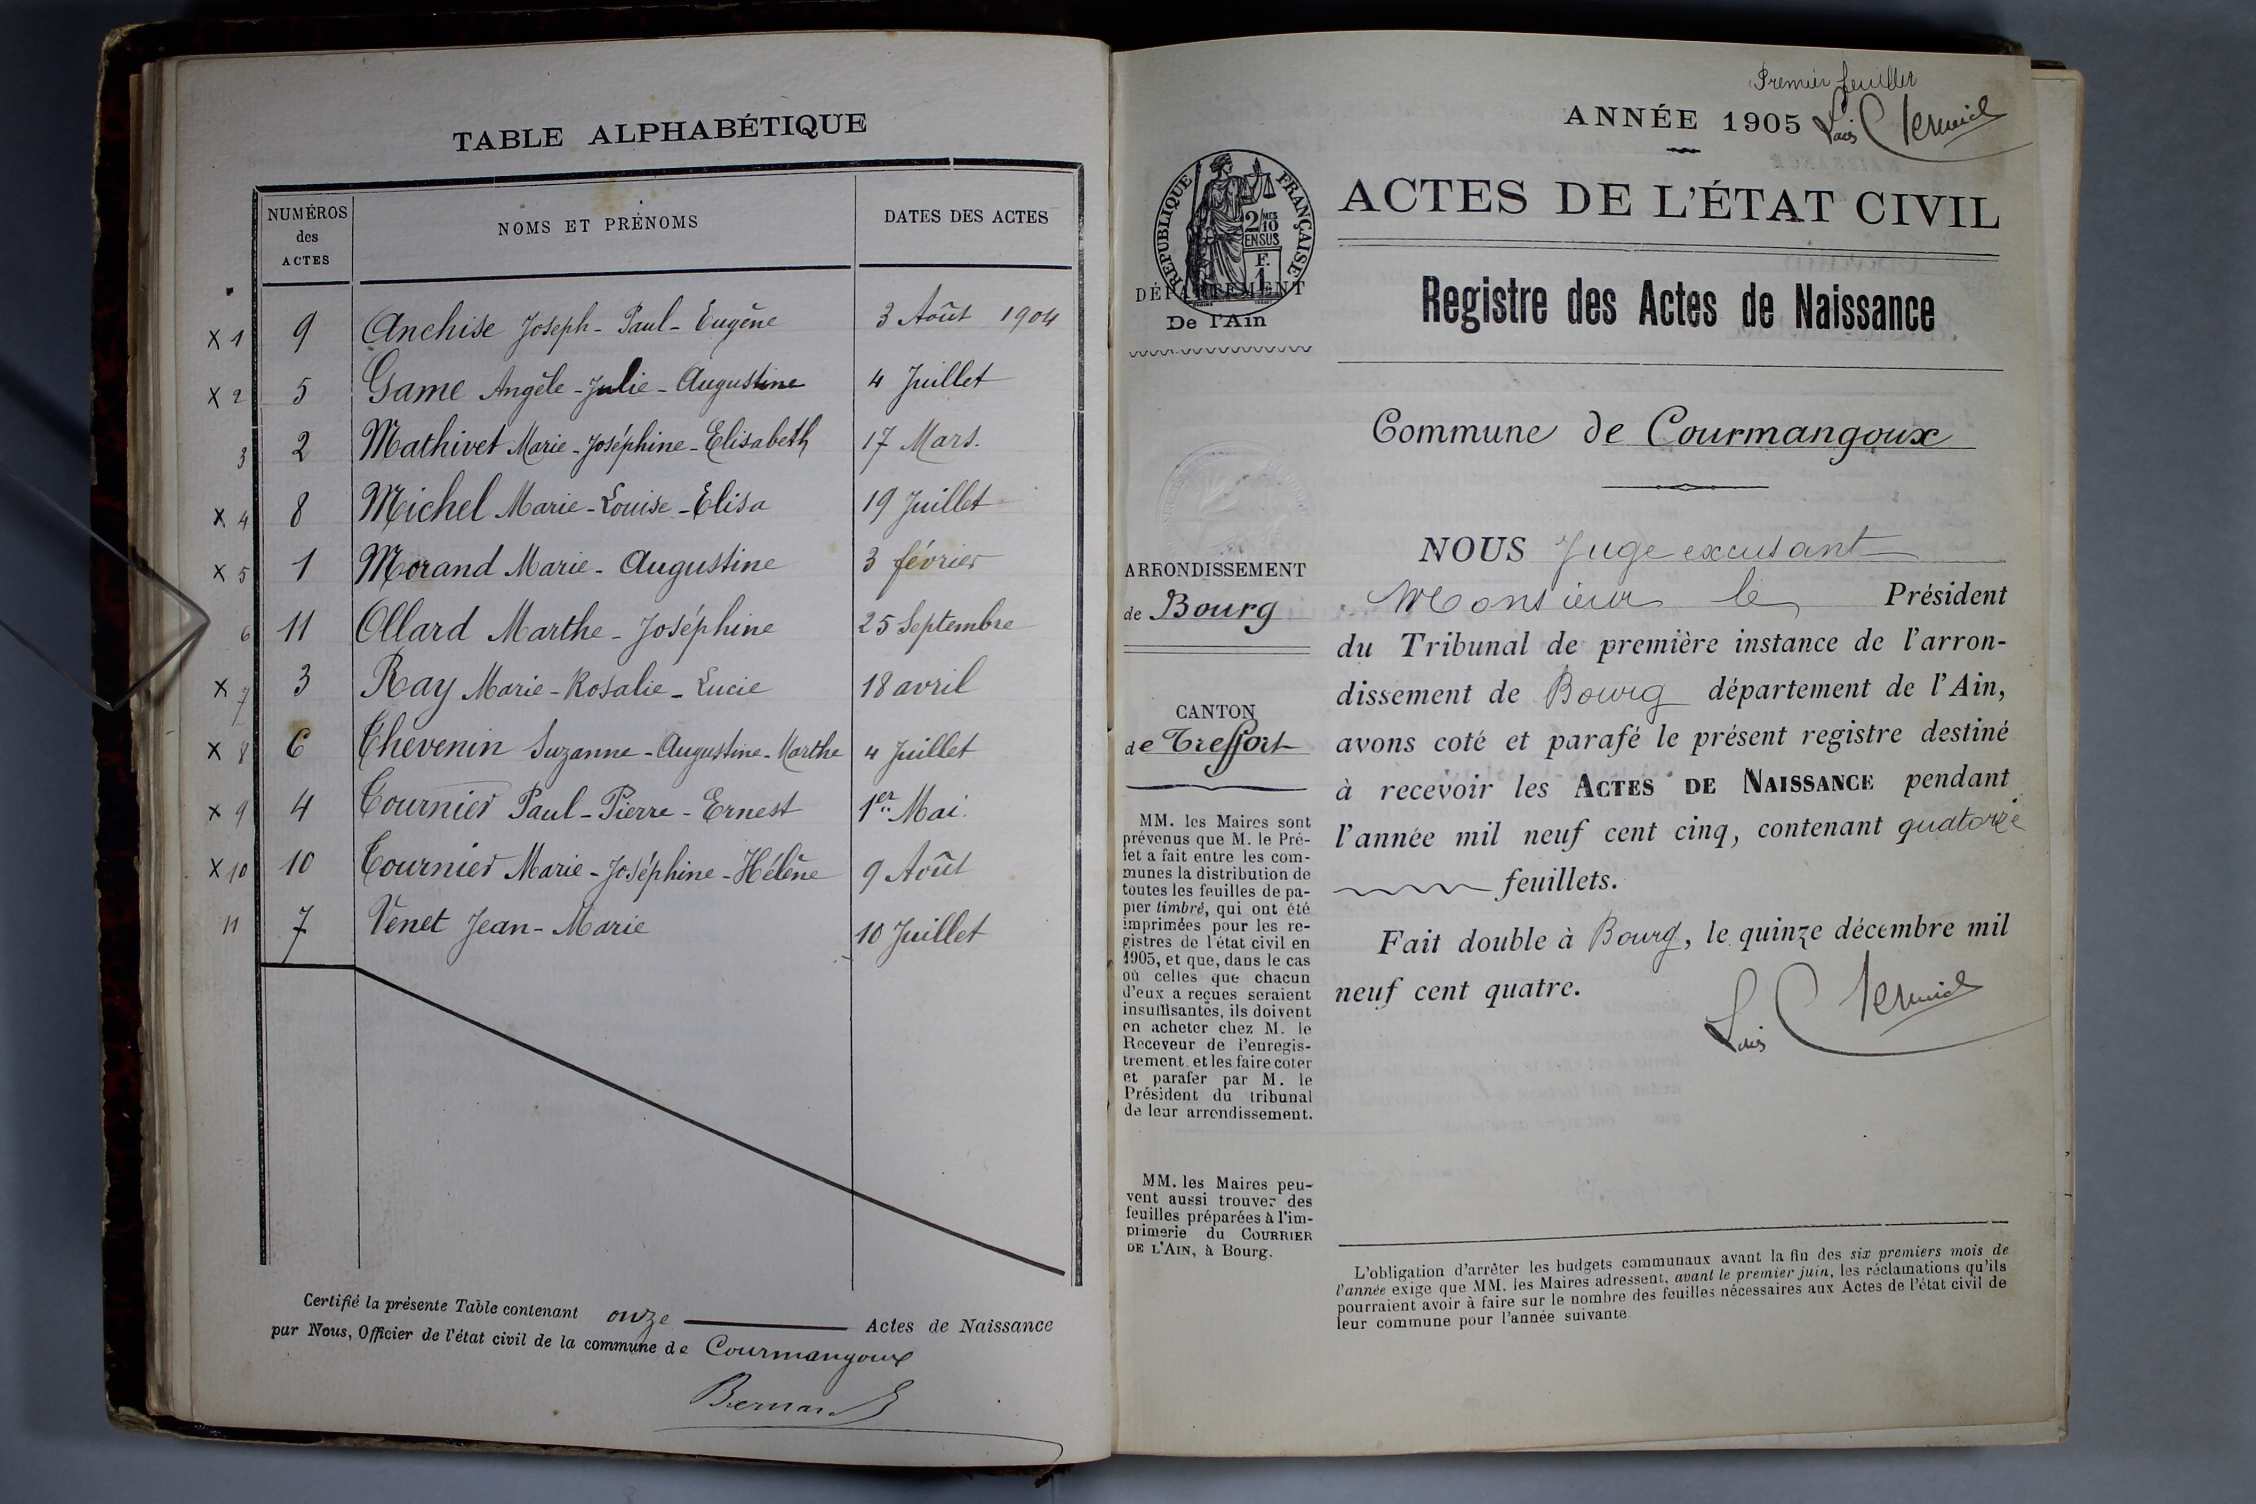 TABLE ALPHABÉTIQUE
NUMÉROS des ACTES NOMS ET PRÉNOMS DATES DES ACTES
x 1 9 Anchise Joseph-Paul-Eugène 3 Août 1904
x 2 5 Game Angèle-Julie-Augustine 4 Juillet
3 2 Mathivet Marie-Joséphine-Elisabeth 17 Mars.
x 4 8 Michel Marie-Louise-Elisa 19 Juillet
x 5 1 Morand Marie-Augustine 3 février
6 11 Ollard Marthe-Joséphine 25 Septembre
x 7 3 Ray Marie-Rosalie-Lucie 18 avril
x 8 6 Thevenin Suzanne-Augustine-Marthe 4 Juillet
x 9 4 Tournier Paul-Pierre-Ernest 1er Mai.
x 10 10 Tournier Marie-Joséphine-Hélène 9 Août
11 7 Venet Jean-Marie 10 Juillet
Certifié la présente Table contenant onze Actes de Naissance
par Nous, Officier de l'état civil de la commune de Courmangoux
Bernard
Premier feuillet
ANNÉE 1905
ACTES DE L'ÉTAT CIVIL
RÉPUBLIQUE FRANÇAISE
2/10 MES
EN SUS
F.
1
DÉPARTEMENT
De l'Ain
Registre des Actes de Naissance
Commune de Courmangoux
ARRONDISSEMENT
de Bourg
CANTON
de Treffort
MM. les Maires sont
prévenus que M. le Pré-
fet a fait entre les com-
munes la distribution de
toutes les feuilles de pa-
pier timbré, qui ont été
imprimées pour les re-
gistres de l'état civil en
1905, et que, dans le cas
où celles que chacun
d'eux a reçues seraient
insuffisantes, ils doivent
en acheter chez M. le
Receveur de l'enregis-
trement et les faire coter
et parafer par M. le
Président du tribunal
de leur arrondissement.
MM. les Maires peu-
vent aussi trouver des
feuilles préparées à l'im-
primerie du COURRIER
DE L'AIN, à Bourg.
NOUS Juge excusant
Monsieur le Président
du Tribunal de première instance de l'arron-
dissement de Bourg département de l'Ain,
avons coté et parafé le présent registre destiné
à recevoir les ACTES DE NAISSANCE pendant
l'année mil neuf cent cinq, contenant quatorze
feuillets.
Fait double à Bourg, le quinze décembre mil
neuf cent quatre.
L'obligation d'arrêter les budgets communaux avant la fin des six premiers mois de
l'année exige que MM. les Maires adressent, avant le premier juin, les réclamations qu'ils
pourraient avoir à faire sur le nombre des feuilles nécessaires aux Actes de l'état civil de
leur commune pour l'année suivante